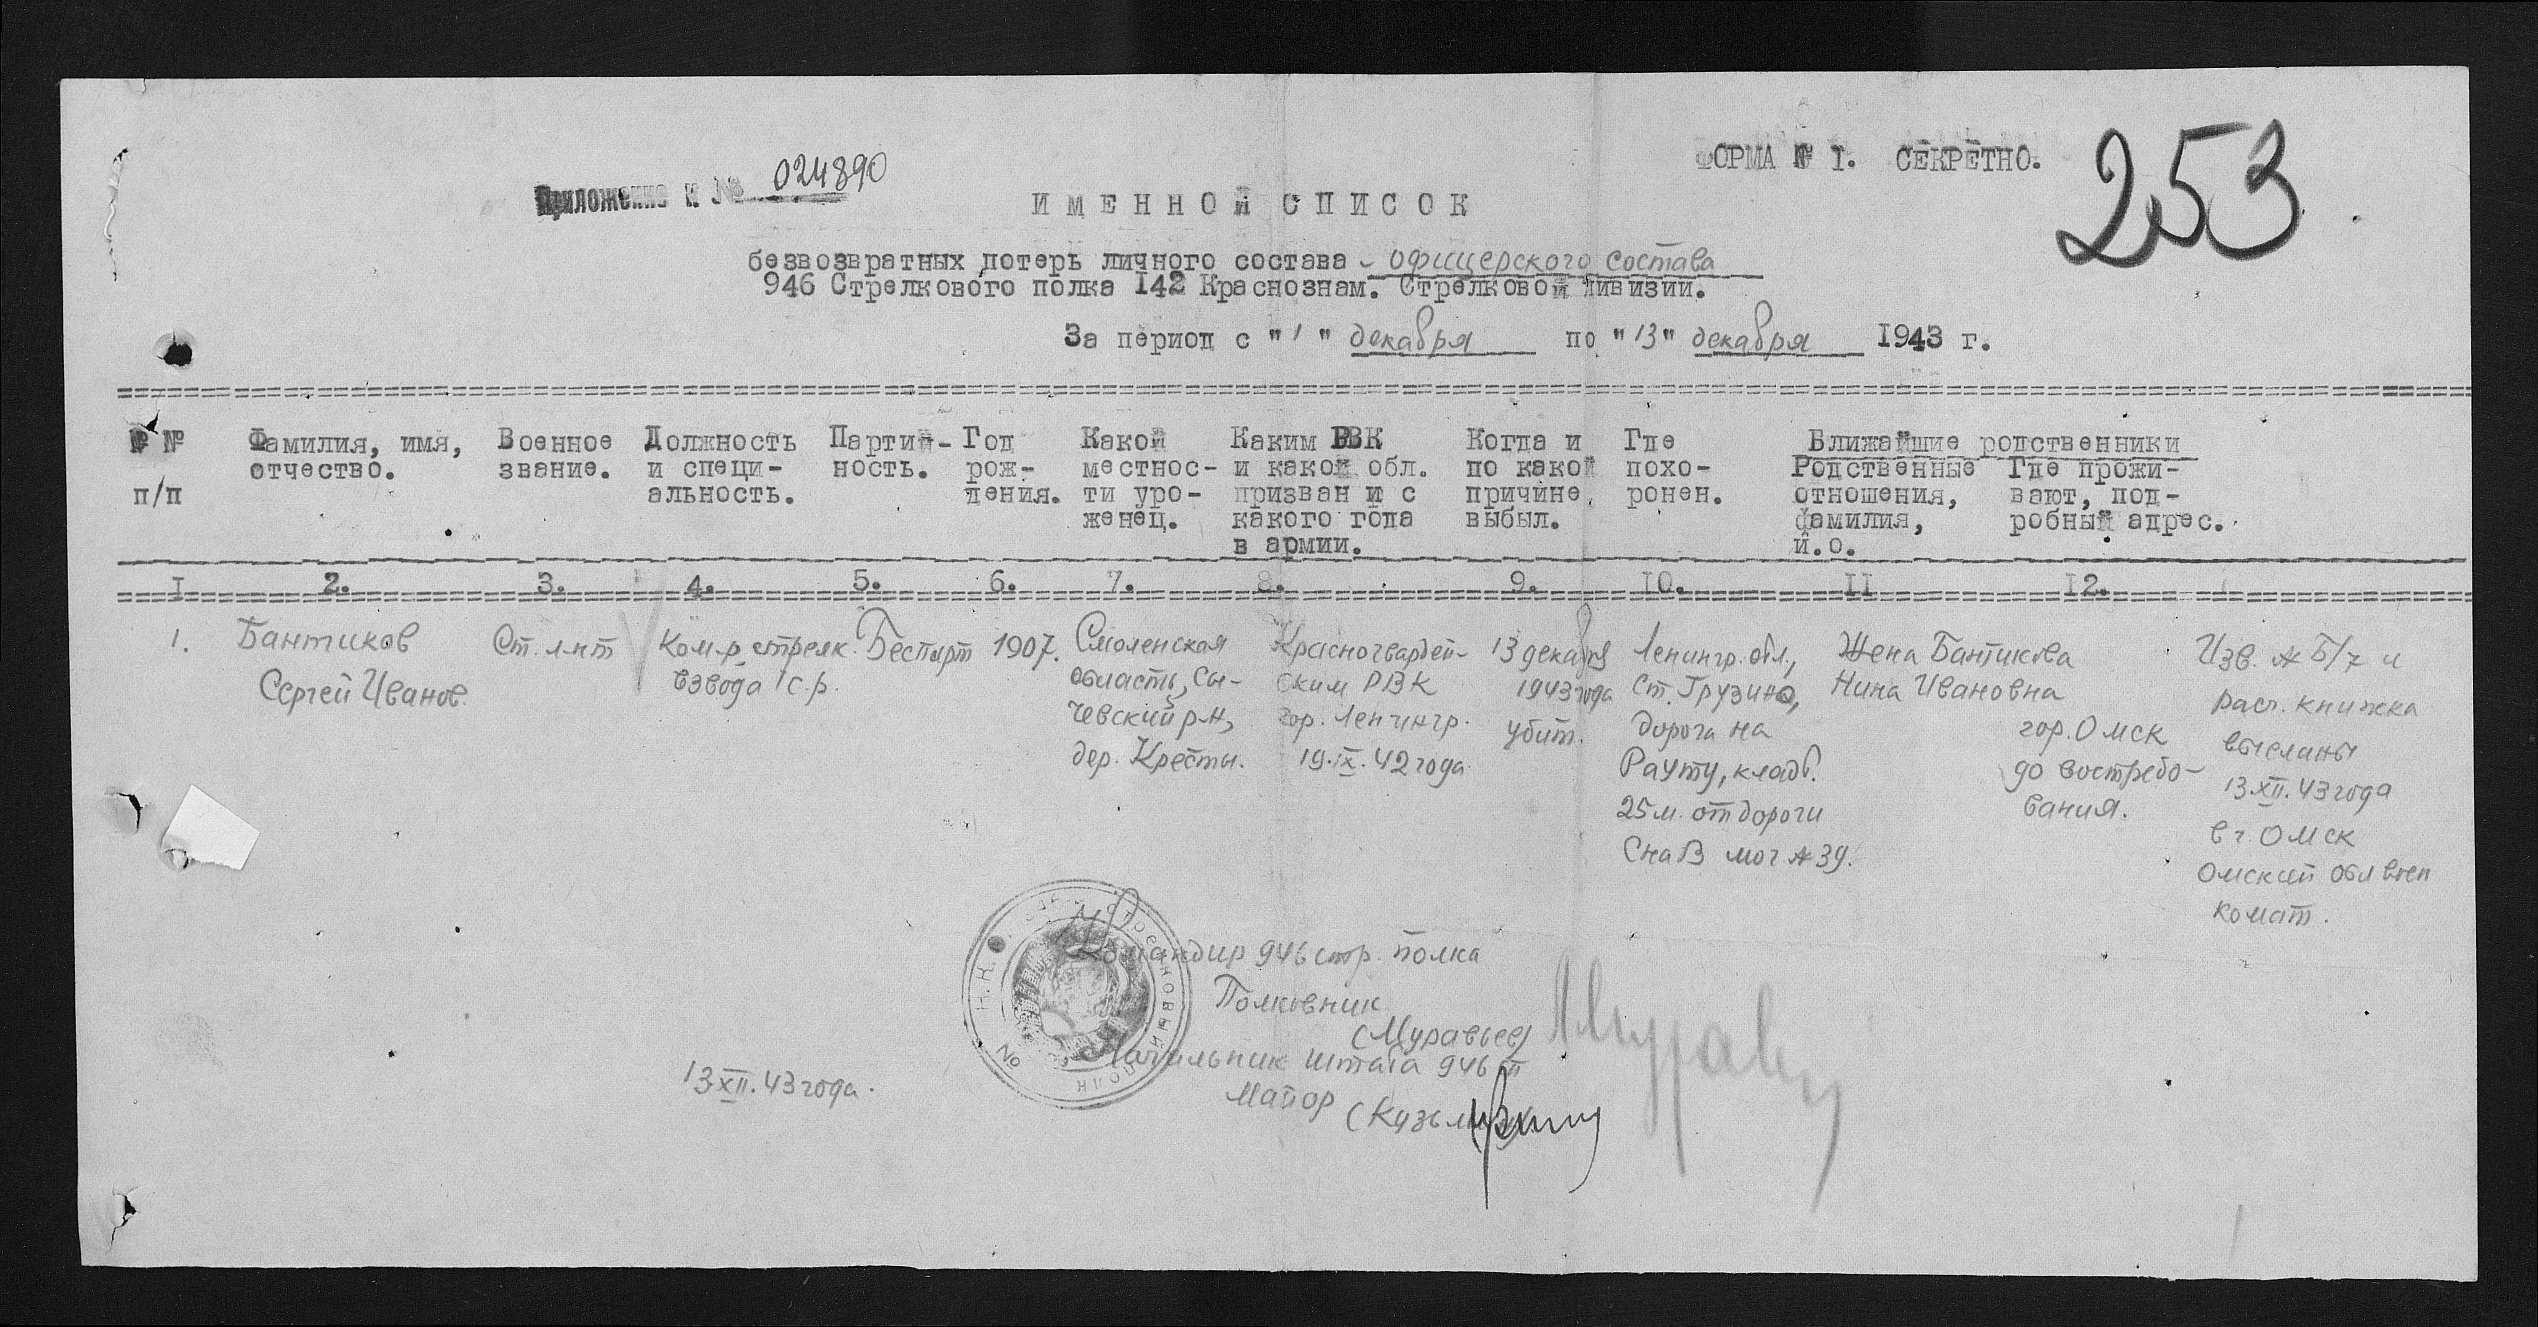 ФОРМА № I. СЕКРЕТНО.
253
Приложение к № 024890
ИМЕННОЙ СПИСОК
безвозвратных потерь личного состава - офицерского состава
946 Стрелкового полка 142 Краснознам. Стрелковой дивизии.
За период с "1" декабря по "13" декабря 1943 г.
№ №
п/п
Фамилия, имя,
отчество.
Военное
звание.
Должность
и специ-
альность.
Партий-
ность.
Год
рож-
дения.
Какой
местнос-
ти уро-
женец.
Каким РВК
и какой обл.
призван и с
какого года
в армии.
Когда и
по какой
причине
выбыл.
Где
похо-
ронен.
Ближайшие родственники
Родственные
отношения,
фамилия,
и.о.
Где прожи-
вают, под-
робный адрес.
I 2. 3. 4. 5. 6. 7. 8. 9. 10. II 12.
1.
Бантиков
Сергей Иванов.
Ст. л-нт
Ком-р стрелк.
взвода с.р.
Беспарт
1907.
Смоленская
область, Сы-
чевский р-н,
дер. Кресты.
Красногвардей-
ским РВК
гор. Ленингр.
19.IX.42 года
13 декабря
1943 года
убит.
Ленингр. обл.,
ст. Грузино,
дорога на
Рауту, кладб.
25 м. от дороги
С на В мог № 39.
Жена Бантикова
Нина Ивановна
гор. Омск
до востребо-
вания.
Изв. № Б/7 и
расч. книжка
высланы
13.XII.43 года
в г. Омск
Омский обл воен
комат.
Командир 946 стр. полка
Полковник
(Муравьев)
Начальник штаба 946 сп
Майор
13.XII.43 года.
Н.К.О. стрелковый полк №